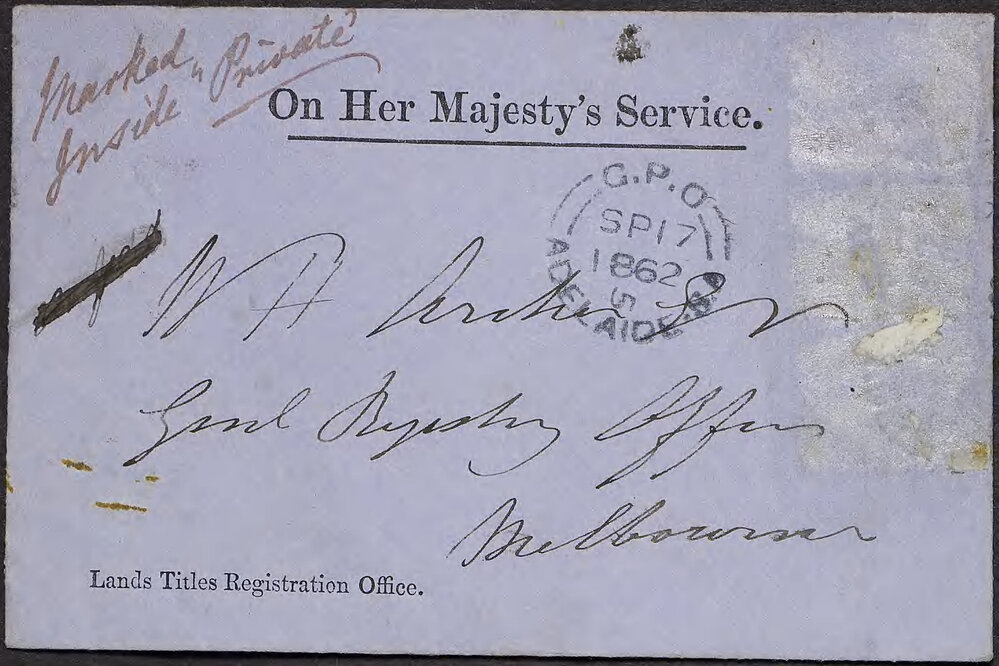 Marked „Private"
Inside
On Her Majesty's Service.
G.P.O
SP 17
1862
5
ADELAIDE
W H Archer Esq
Genl Registry Office
Melbourne
Lands Titles Registration Office.